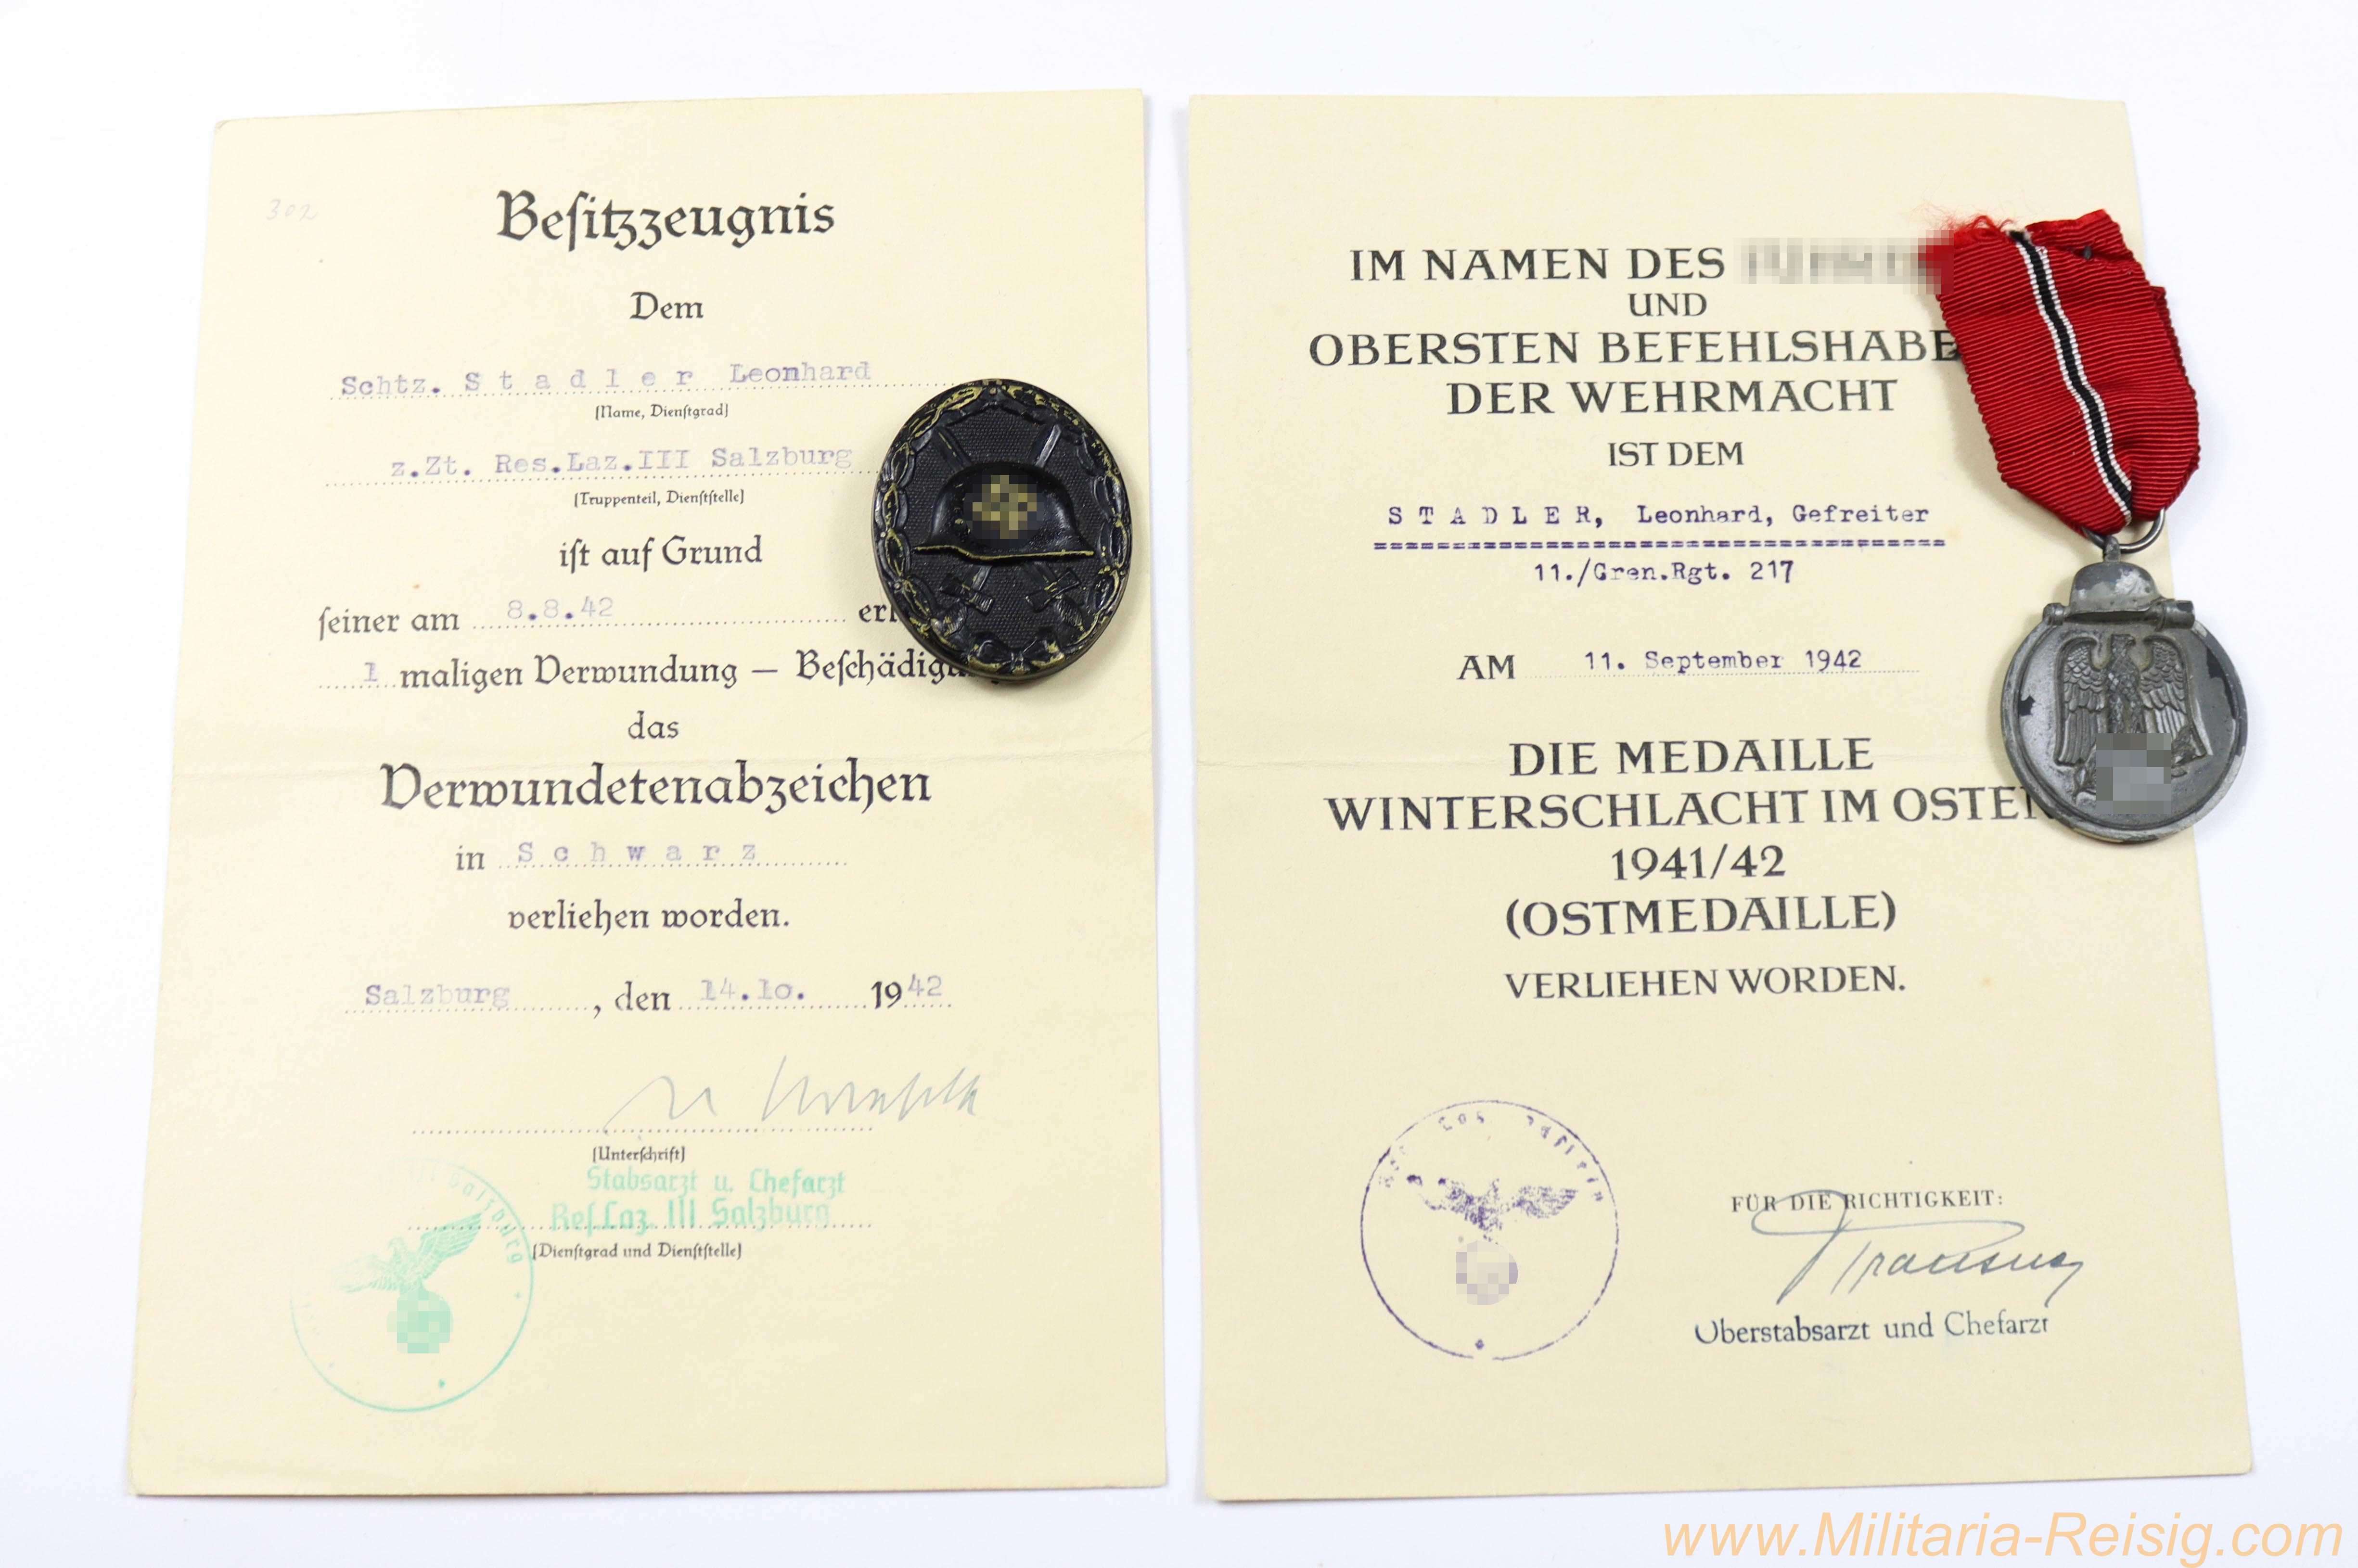 302
Besitzzeugnis
Dem
Schtz. S t a d l e r Leonhard
(Name, Dienstgrad)
z.Zt. Res.Laz.III Salzburg
(Truppenteil, Dienststelle)
ist auf Grund
seiner am 8.8.42
1 maligen Verwundung — Beschädig
das
Verwundetenabzeichen
in S c h w a r z
verliehen worden.
Salzburg, den 14.10. 1942
(Unterschrift)
Stabsarzt u. Chefarzt
Res.Laz. III Salzburg
(Dienstgrad und Dienststelle)
Salzburg
IM NAMEN DES
UND
OBERSTEN BEFEHLSHABE
DER WEHRMACHT
IST DEM
S T A D L E R, Leonhard, Gefreiter
11./Gren.Rgt. 217
AM 11. September 1942
DIE MEDAILLE
WINTERSCHLACHT IM OSTEN
1941/42
(OSTMEDAILLE)
VERLIEHEN WORDEN.
FÜR DIE RICHTIGKEIT:
Oberstabsarzt und Chefarzt
www.Militaria-Reisig.com